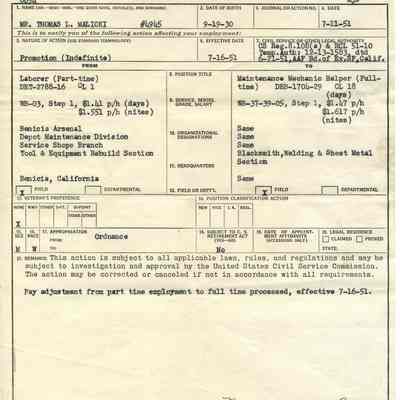 1. NAME (MR.—MISS—MRS.—ONE GIVEN NAME, INITIAL(S), AND SURNAME)
2. DATE OF BIRTH
3. JOURNAL OR ACTION NO.
4. DATE
MR. THOMAS L. MALICKI #4945
9-19-30
7-11-51
This is to notify you of the following action affecting your employment:
5. NATURE OF ACTION (USE STANDARD TERMINOLOGY)
6. EFFECTIVE DATE
7. CIVIL SERVICE OR OTHER LEGAL AUTHORITY
Promotion (Indefinite)
7-16-51
CS Reg.8.108(a) & RCL 51-10
FROM
TO
Laborer (Part-time)
8. POSITION TITLE
Maintenance Mechanic Helper (Full-
time)
CL 1
CL 18
WB-03, Step 1, $1.41 p/h (days)
$1.551 p/h (nites)
9. SERVICE, SERIES, GRADE, SALARY
WB-37-39-05, Step 1, $1.47 p/h
(days)
$1.617 p/h
(nites)
Benicia Arsenal
Depot Maintenance Division
Service Shops Branch
Tool & Equipment Rebuild Section
10. ORGANIZATIONAL DESIGNATIONS
Same
Same
Same
Blacksmith,Welding & Sheet Metal
Section
11. HEADQUARTERS
Benicia, California
Same
X FIELD DEPARTMENTAL
12. FIELD OR DEPT'L
X FIELD DEPARTMENTAL
13. VETERAN'S PREFERENCE
14. POSITION CLASSIFICATION ACTION
NONE WWII OTHER 5-PT. 10-POINT
DISAB. OTHER
NEW VICE I.A. REAL.
X
15. SEX
16. RACE
17. APPROPRIATION
FROM:
TO:
Ordnance
18. SUBJECT TO C. S. RETIREMENT ACT (YES—NO)
19. DATE OF APPOINTMENT AFFIDAVITS (ACCESSIONS ONLY)
20. LEGAL RESIDENCE
CLAIMED PROVED
STATE:
M W
No
21. REMARKS: This action is subject to all applicable laws, rules, and regulations and may be
subject to investigation and approval by the United States Civil Service Commission.
The action may be corrected or canceled if not in accordance with all requirements.
Pay adjustment from part time employment to full time processed, effective 7-16-51.